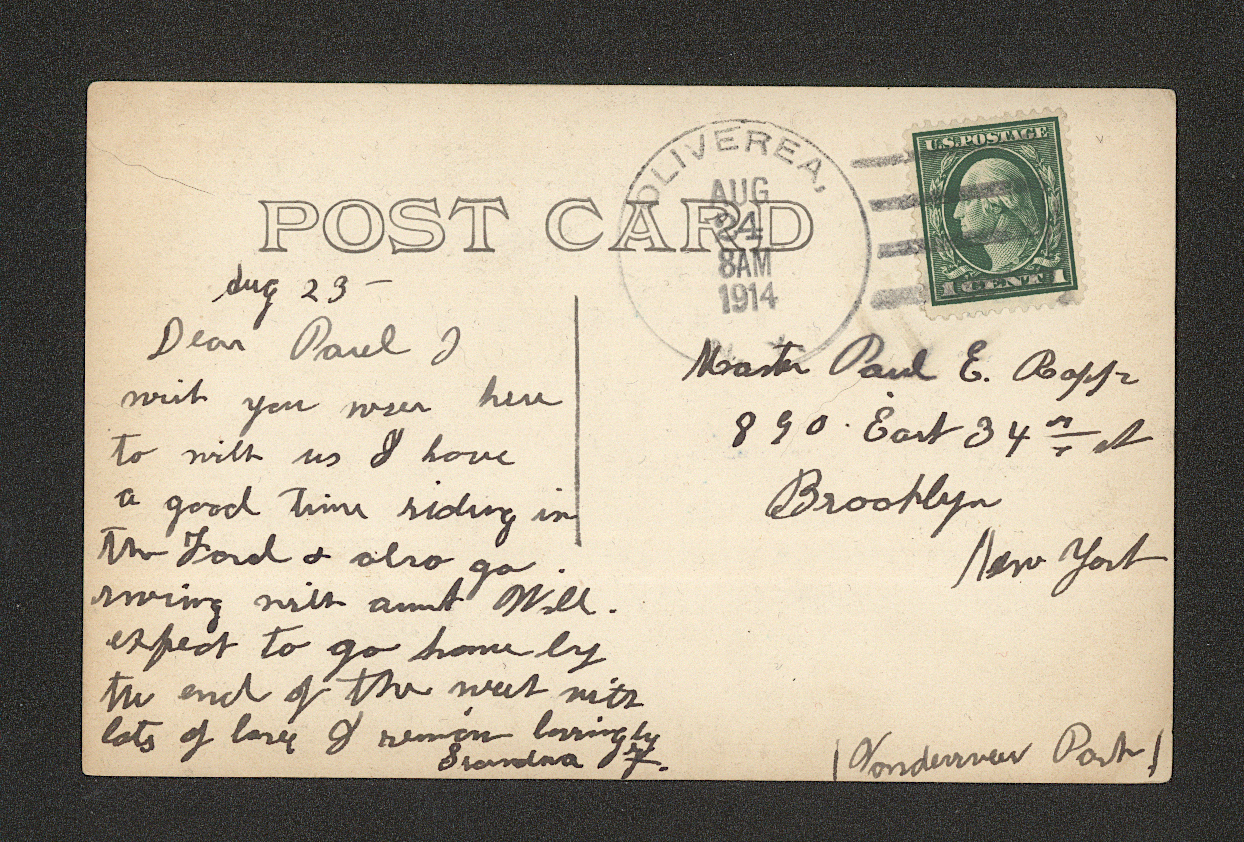 POST CARD
OLIVEREA,
AUG
24
8AM
1914
U.S. POSTAGE
1 CENT 1
Aug 23 -
Dear Paul I
wish you were here
to with us I have
a good time riding in
the Ford & also go
rowing with aunt Will.
expect to go home by
the end of the week with
lots of love I remain lovingly
Grandma
Master Paul E.
890 East 34 st
Brooklyn
New York
(Vanderveer Park)